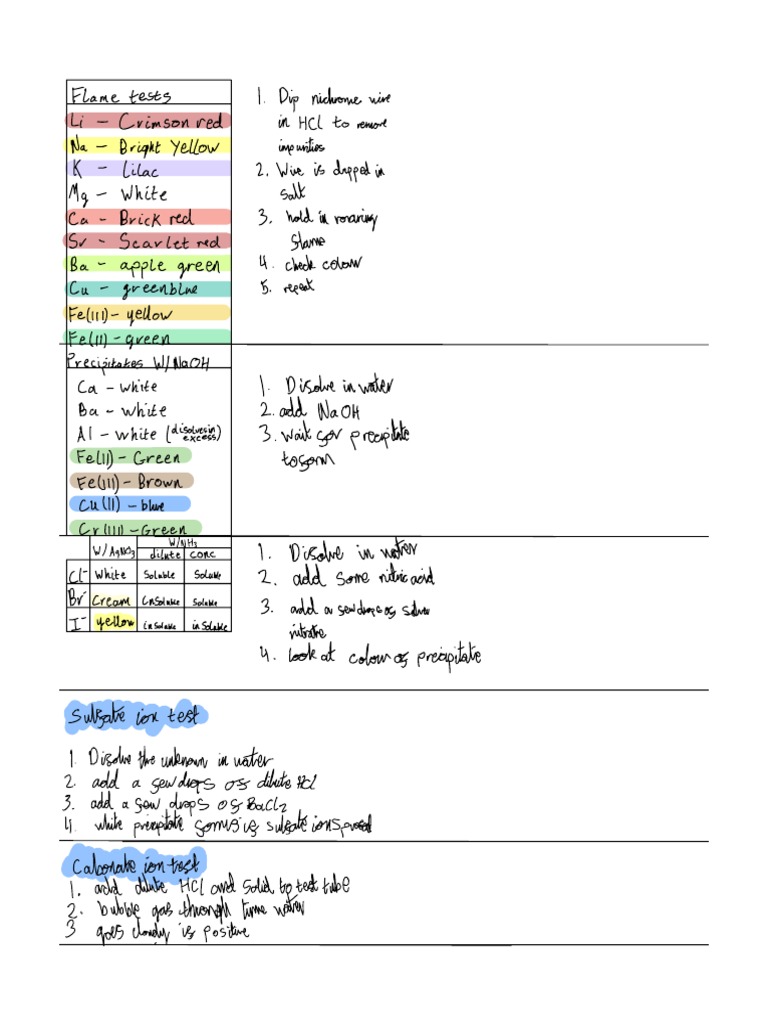 Flame tests
Li - Crimson red
Na - Bright Yellow
K - Lilac
Mg - White
Ca - Brick red
Sr - Scarlet red
Ba - apple green
Cu - greenblue
Fe(III) - yellow
Fe(II) - green
1. Dip nichrome wire
in HCl to remove
impurities
2. Wire is dipped in
salt
3. hold in roraring
flame
4. check colour
5. repeat
Precipitates W/NaOH
Ca - white
Ba - white
Al - white (disolves in
excess)
Fe(II) - Green
Fe(III) - Brown
Cu(II) - blue
Cr(III) - Green
1. Disolve in water
2. add NaOH
3. wait for precipitate
to form
W/AgNO3 W/NH3
dilute conc
Cl- White Soluble Soluble
Br- Cream insoluble soluble
I- yellow insoluble insoluble
1. Disolve in water
2. add some nitric acid
3. add a few drops of silver
nitrate
4. look at colour of precipitate
Sulfate ion test
1. Disolve the unknown in water
2. add a few drops of dilute HCl
3. add a few drops of BaCl2
4. white precipitate forms if sulfate ions
Cabonate ion test
1. add dilute HCl and solid to test tube
2. bubble gas through lime water
3 goes cloudy if positive